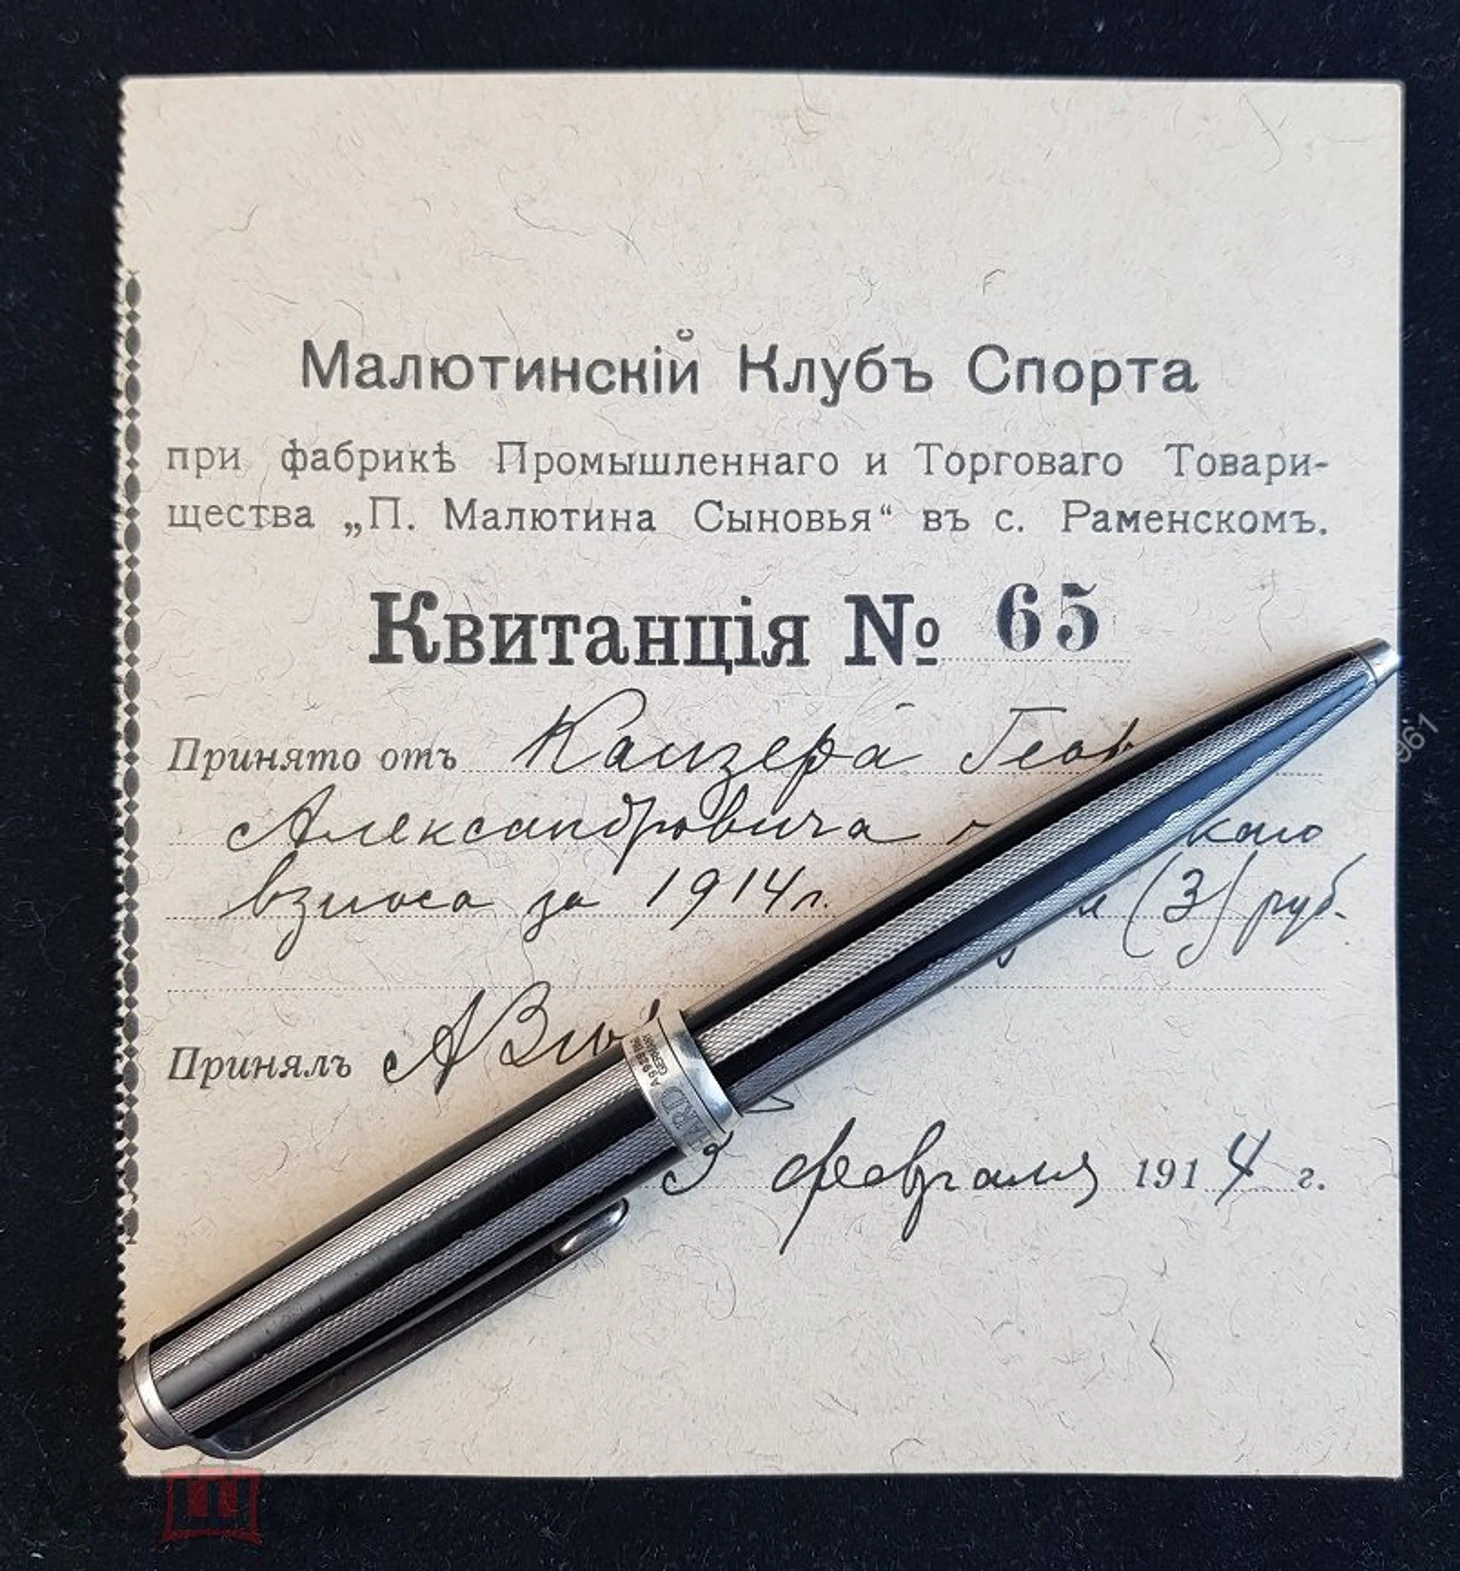 Малютинскій Клубъ Спорта
при фабрикѣ Промышленнаго и Торговаго Товари-
щества „П. Малютина Сыновья“ въ с. Раменскомъ.
Квитанція № 65
Принято отъ Каизера
Александровича
взноса за 1914г. (3) руб.
Принялъ
Ag 925 GERMANY
3 февраля 1914 г.
961